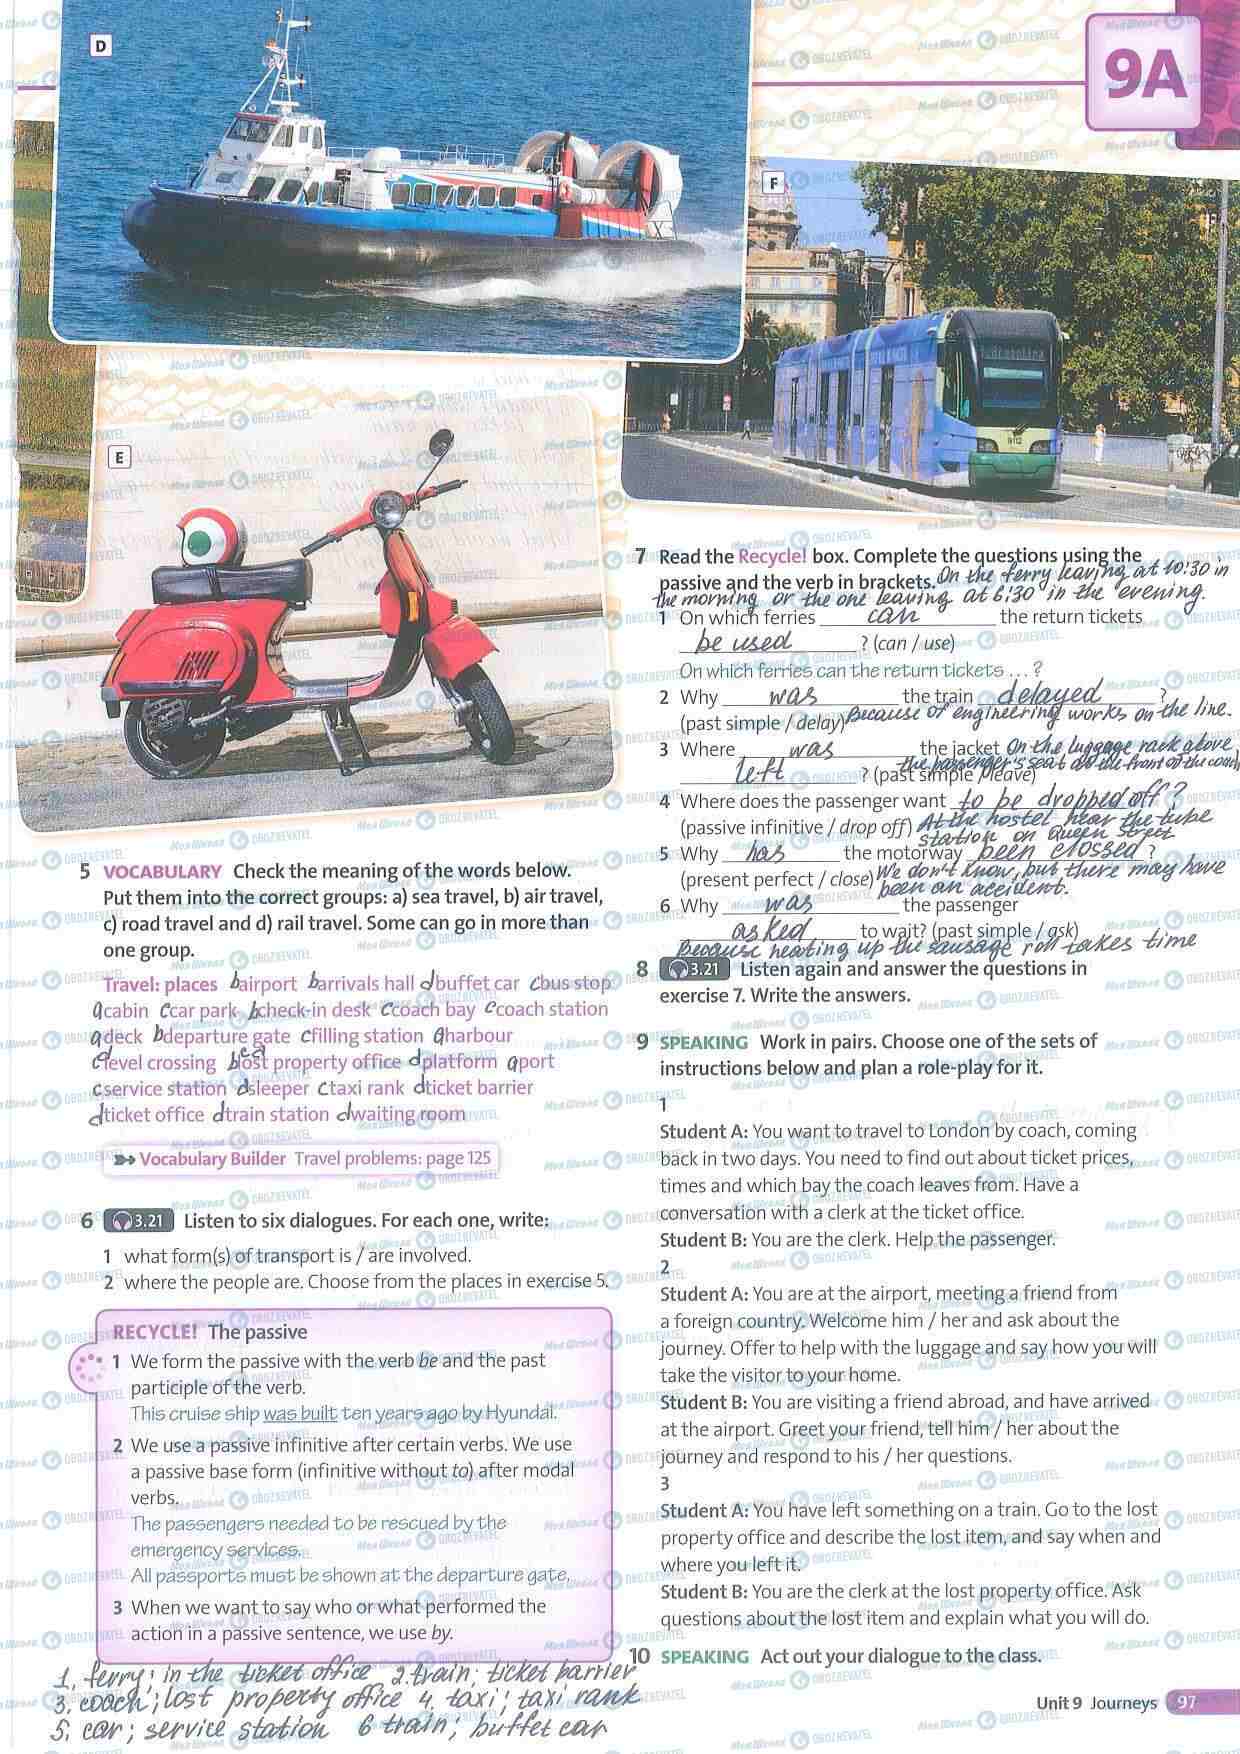 9A
D
F
E
5 VOCABULARY Check the meaning of the words below.
Put them into the correct groups: a) sea travel, b) air travel,
c) road travel and d) rail travel. Some can go in more than
one group.
Travel: places b airport b arrivals hall d buffet car c bus stop
a cabin c car park b check-in desk c coach bay c coach station
a deck b departure gate c filling station a harbour
c level crossing b lost property office d platform a port
c service station d sleeper c taxi rank d ticket barrier
d ticket office d train station d waiting room
Vocabulary Builder Travel problems: page 125
6 3.21 Listen to six dialogues. For each one, write:
1 what form(s) of transport is / are involved.
2 where the people are. Choose from the places in exercise 5.
RECYCLE! The passive
1 We form the passive with the verb be and the past
participle of the verb.
This cruise ship was built ten years ago by Hyundai.
2 We use a passive infinitive after certain verbs. We use
a passive base form (infinitive without to) after modal
verbs.
The passengers needed to be rescued by the
emergency services.
All passports must be shown at the departure gate.
3 When we want to say who or what performed the
action in a passive sentence, we use by.
1. ferry; in the ticket office 2. train; ticket barrier
3. coach; lost property office 4. taxi; taxi rank
5. car; service station 6 train; buffet car
7 Read the Recycle! box. Complete the questions using the
passive and the verb in brackets. On the ferry leaving at 10:30 in
the morning or the one leaving at 6:30 in the evening.
1 On which ferries can the return tickets
be used ? (can / use)
On which ferries can the return tickets … ?
2 Why was the train delayed ?
(past simple / delay) Because of engineering works on the line.
3 Where was the jacket On the luggage rack above
the passenger's seat at the front of the coach
left ? (past simple / leave)
4 Where does the passenger want to be dropped off ?
(passive infinitive / drop off) At the hostel near the tube
station on Queen Street
5 Why has the motorway been closed ?
(present perfect / close) We don't know, but there may have
been an accident.
6 Why was the passenger
asked to wait? (past simple / ask)
Because heating up the sausage roll takes time
8 3.21 Listen again and answer the questions in
exercise 7. Write the answers.
9 SPEAKING Work in pairs. Choose one of the sets of
instructions below and plan a role-play for it.
1
Student A: You want to travel to London by coach, coming
back in two days. You need to find out about ticket prices,
times and which bay the coach leaves from. Have a
conversation with a clerk at the ticket office.
Student B: You are the clerk. Help the passenger.
2
Student A: You are at the airport, meeting a friend from
a foreign country. Welcome him / her and ask about the
journey. Offer to help with the luggage and say how you will
take the visitor to your home.
Student B: You are visiting a friend abroad, and have arrived
at the airport. Greet your friend, tell him / her about the
journey and respond to his / her questions.
3
Student A: You have left something on a train. Go to the lost
property office and describe the lost item, and say when and
where you left it.
Student B: You are the clerk at the lost property office. Ask
questions about the lost item and explain what you will do.
10 SPEAKING Act out your dialogue to the class.
Unit 9 Journeys 97